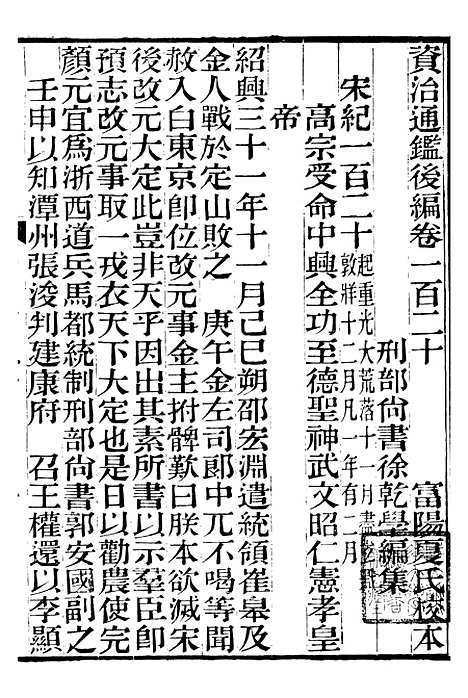 資治通鑑後編卷一百二十　富陽夏氏校本
刑部尙書徐乾學編集
宋紀一百二十起重光大荒落十一月盡
敦牂十二月凡一年有二月
高宗受命中興全功至德聖神武文昭仁憲孝皇
帝
紹興三十一年十一月己巳朔邵宏淵遣統領崔皋及
金人戰於定山敗之　庚午金左司郎中兀不喝等聞
赦入白東京卽位改元事金主拊髀歎曰朕本欲滅宋
後改元大定此豈非天乎因出其素所書以示羣臣卽
預志改元事取一戎衣天下大定也是日以勸農使完
顏元宜爲浙西道兵馬都統制刑部尙書郭安國副之
壬申以知潭州張浚判建康府　召王權還以李顯